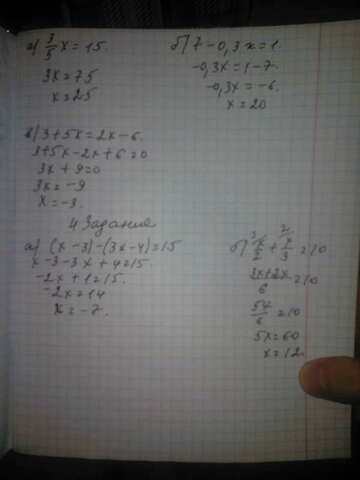 а) 3/5 x = 15
3x = 75
x = 25
б) 7 - 0,3x = 1
-0,3x = 1 - 7
-0,3x = -6
x = 20
в) 3 + 5x = 2x - 6
3 + 5x - 2x + 6 = 0
3x + 9 = 0
3x = -9
x = -3.
4 Задание
а) (x - 3) - (3x - 4) = 15
x - 3 - 3x + 4 = 15.
-2x + 1 = 15.
-2x = 14
x = -7.
б) 3 x/2 + 2 x/3 = 10
3x + 2x / 6 = 10
5x/6 = 10
5x = 60
x = 12